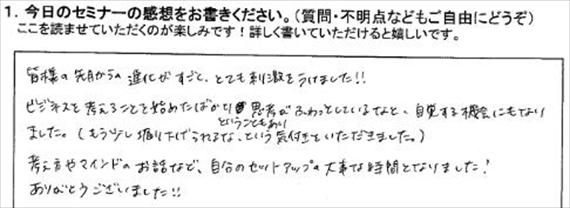 1. 今日のセミナーの感想をお書きください。(質問・不明点などもご自由にどうぞ)
ここを読ませていただくのが楽しみです！詳しく書いていただけると嬉しいです。
皆様の先月からの進化がすごく、とても刺激をうけました!!
ビジネスを考えることを始めたばかり 思考がふわっとしているなと、自覚する機会にもなり
ということもあり
ました。(もう少し掘り下げられるな、という気付きをいただきました。)
考え方やマインドのお話など、自分のセットアップの大事な時間となりました！
ありがとうございました!!